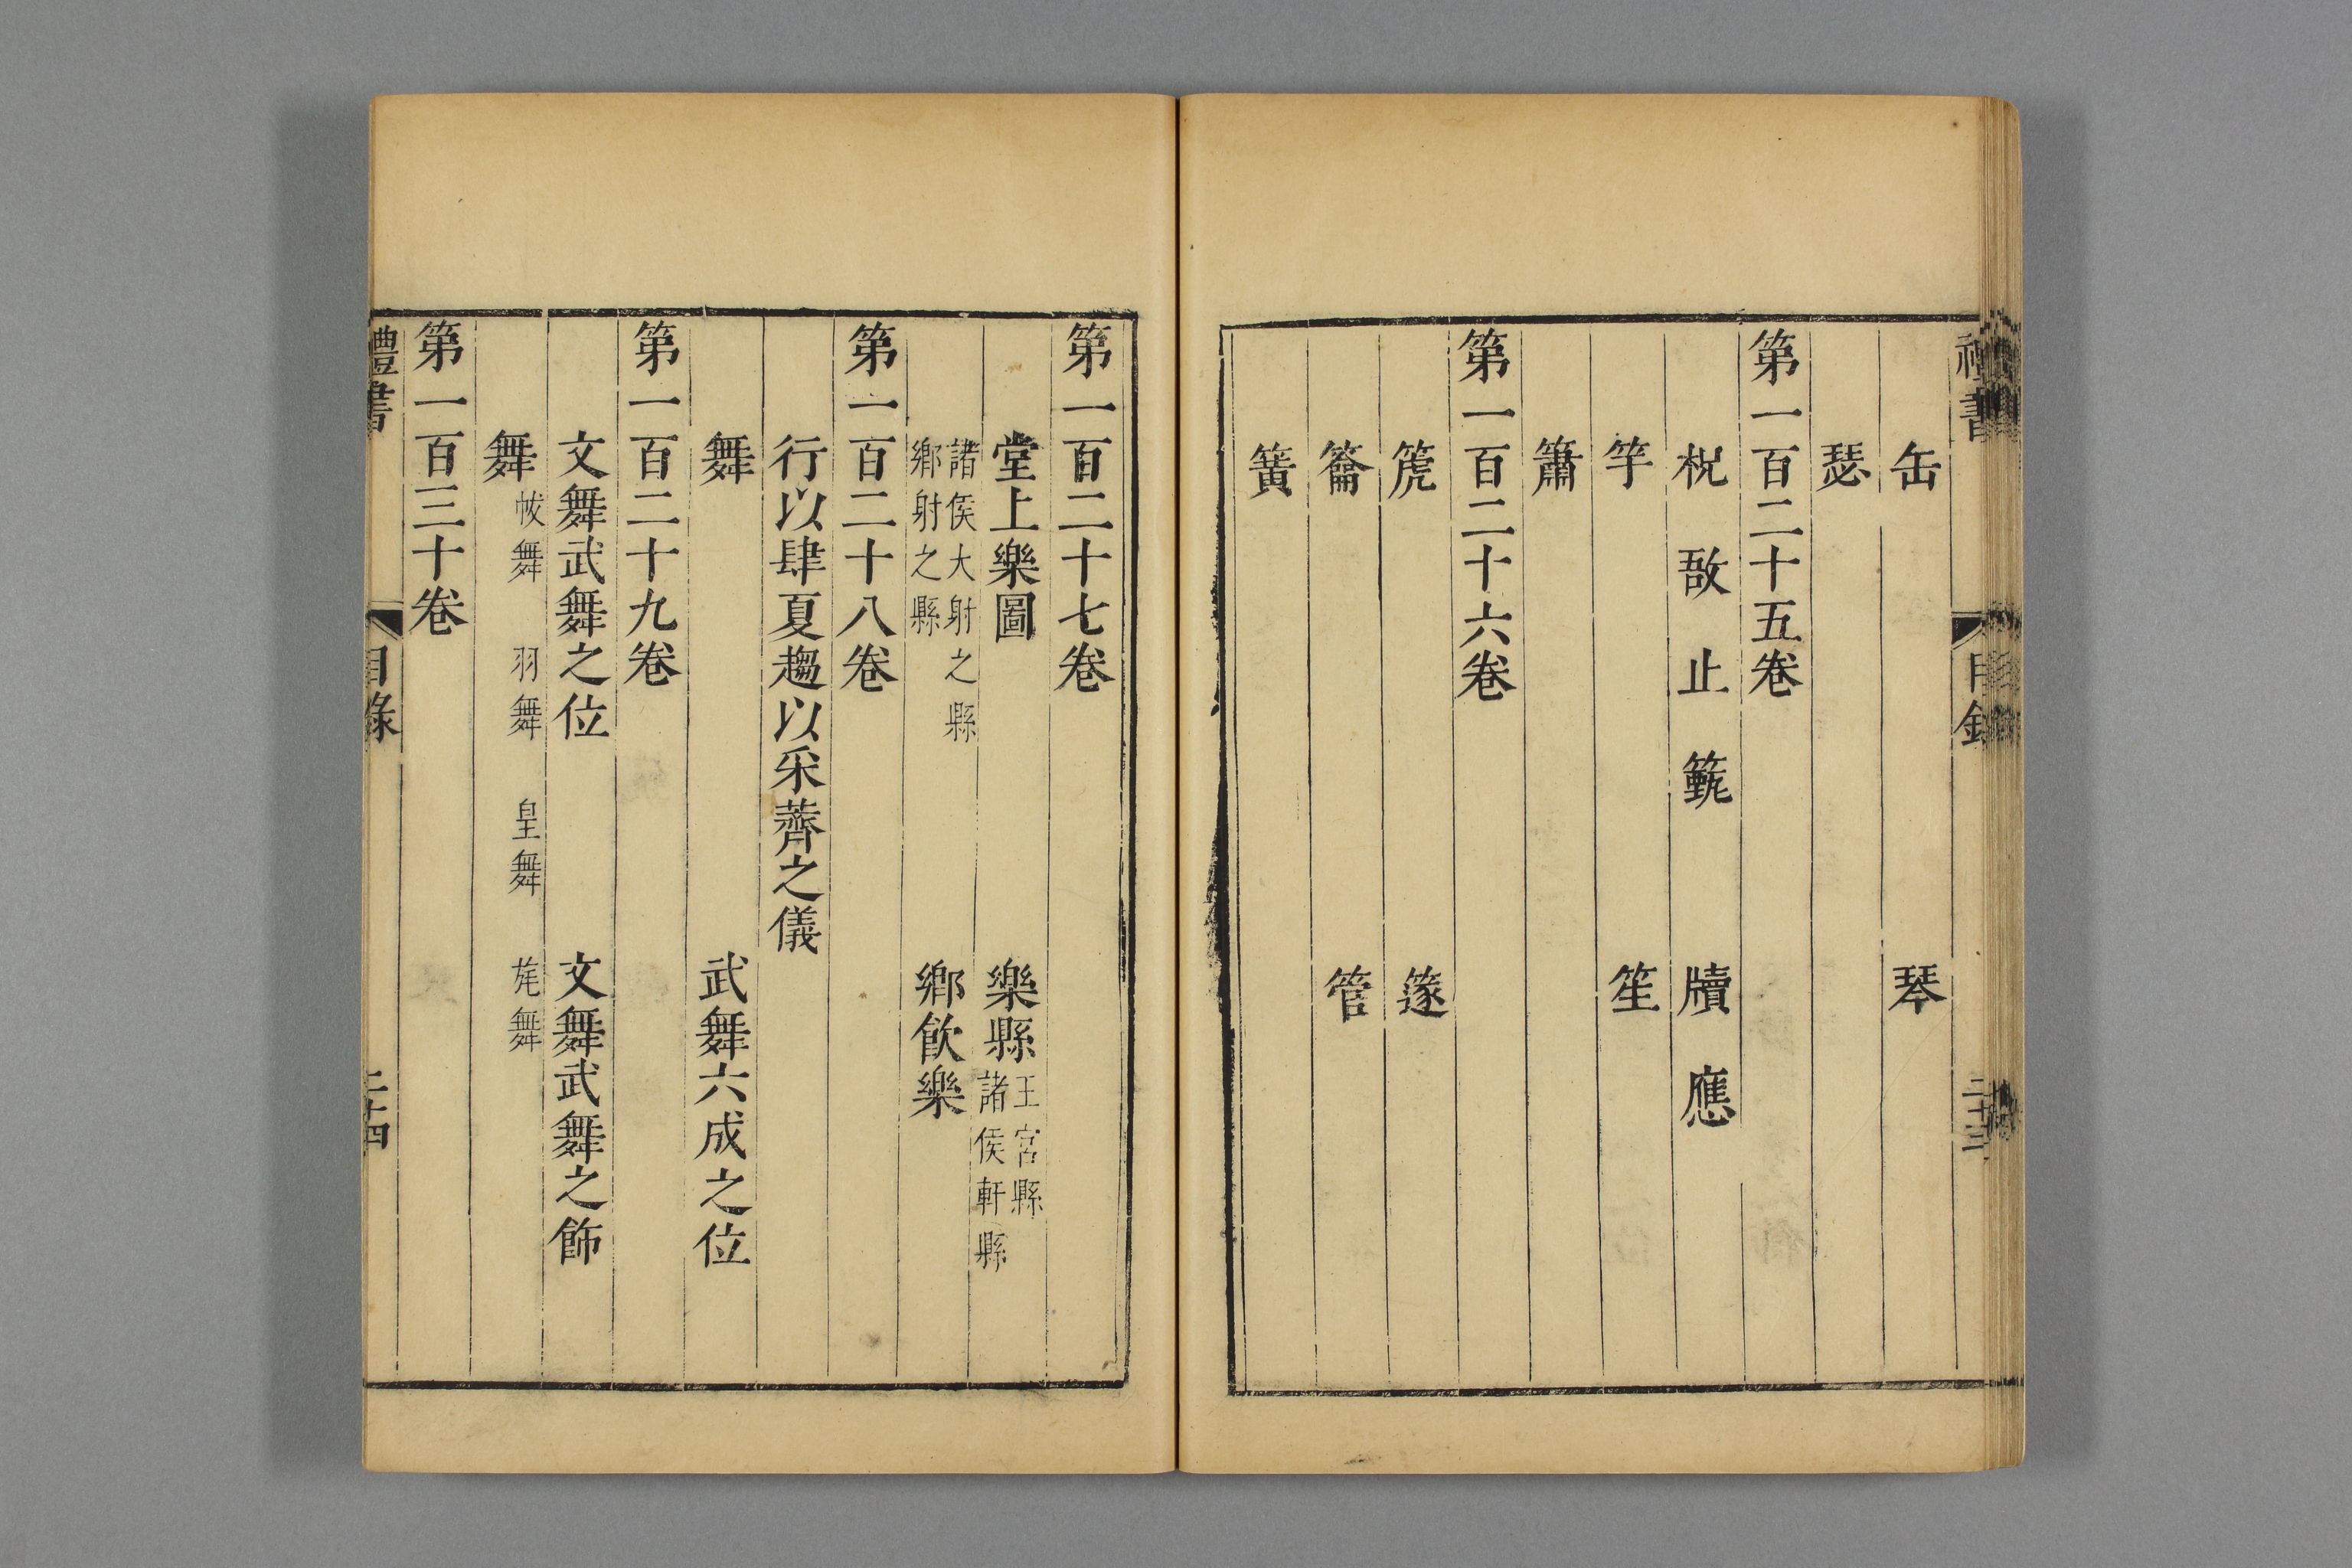 缶 琴
瑟
第一百二十五卷
柷 敔 止 籈 牘 應
竽 笙
簫
第一百二十六卷
篪 篴
籥 管
簧
第一百二十七卷
堂上樂圖 樂縣 王宮縣 諸侯軒縣
諸侯大射之縣 鄉射之縣 鄉飲樂
第一百二十八卷
行以肆夏趨以采薺之儀
舞 武舞六成之位
第一百二十九卷
文舞武舞之位 文舞武舞之飾
舞 帗舞 羽舞 皇舞 旄舞
第一百三十卷
禮書 目錄 二十四